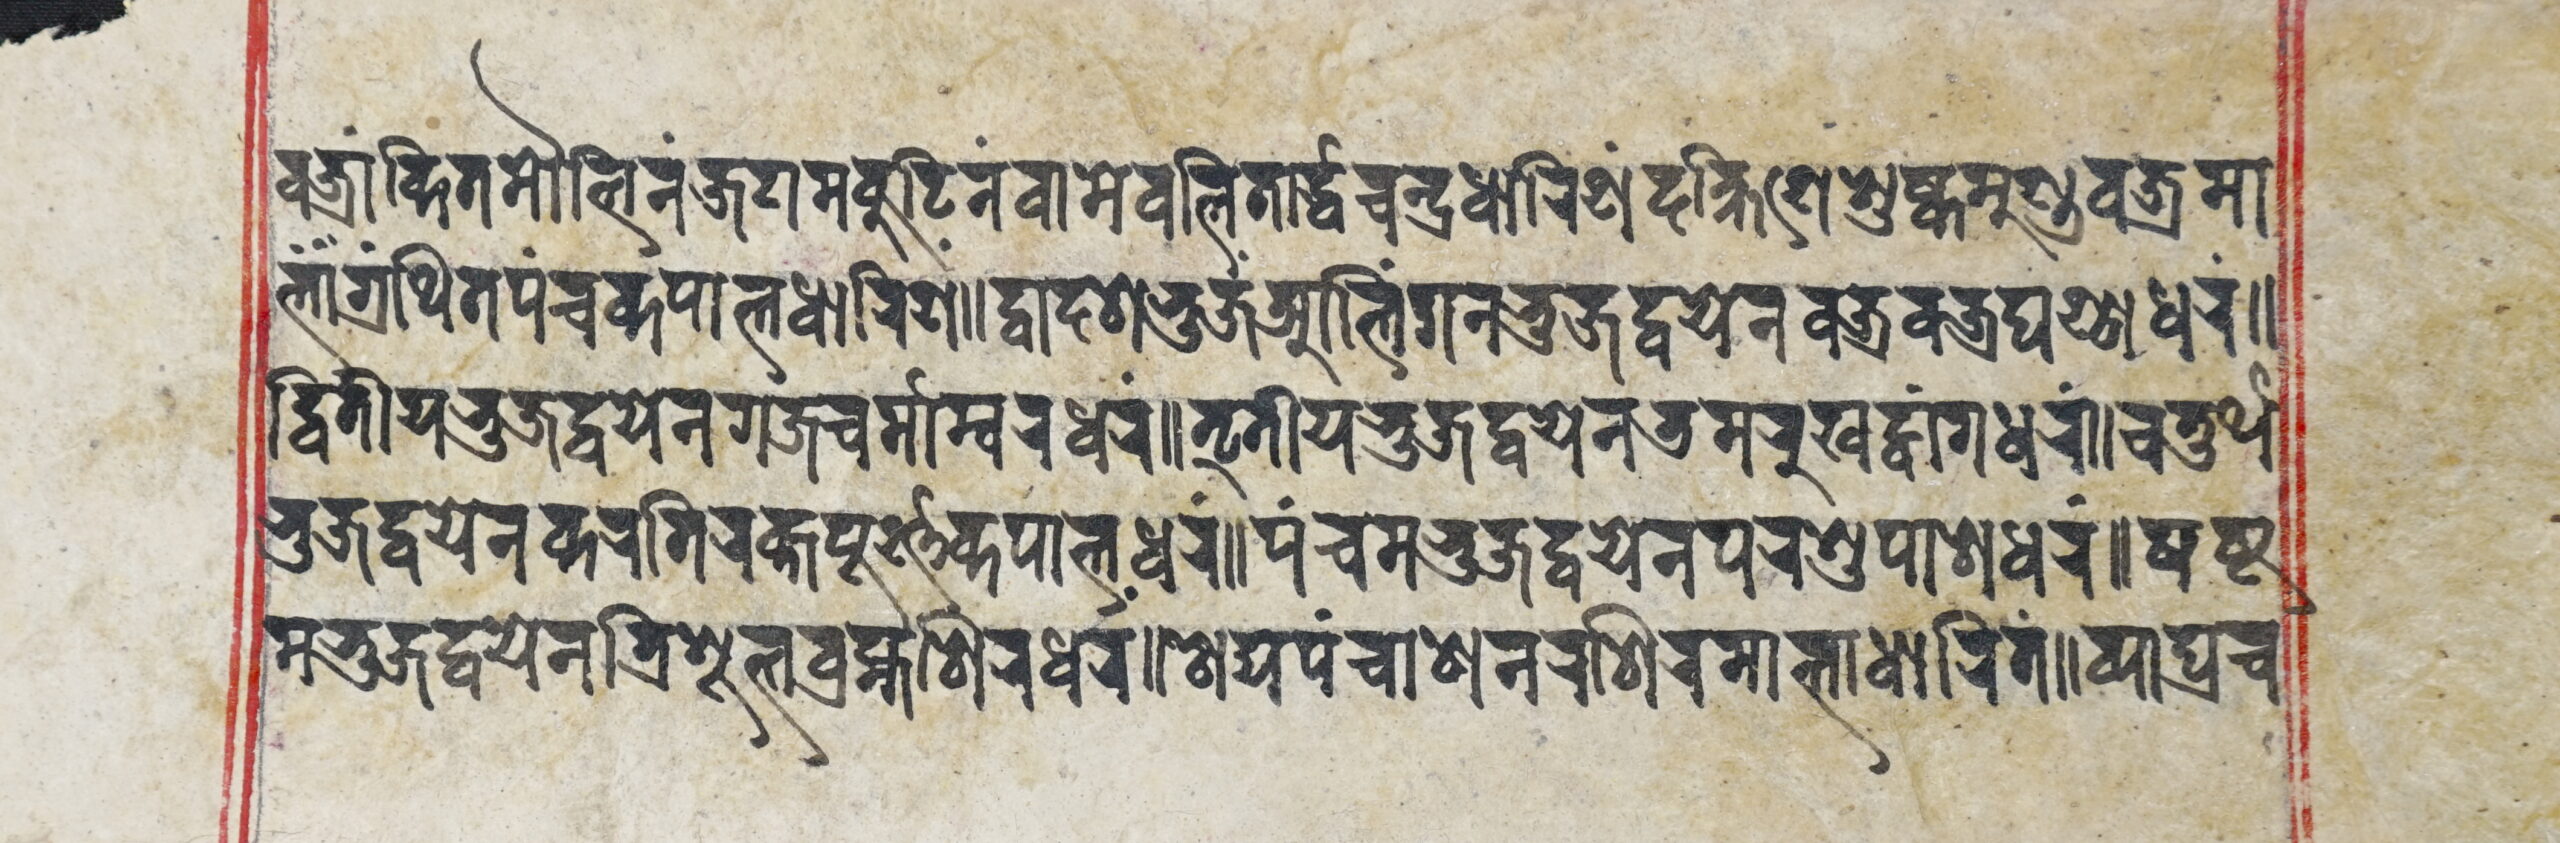 वज्रांकितमौलिनं जटामकुटिनं वामे वलितार्द्धचन्द्रधारिणं दक्षिणे शुष्कमुण्डवज्रमा
लां ग्रंथितपंचकपालधारिणं॥ द्वादशभुजं आलिंगनभुजद्वयेन वज्रवज्रघण्ठाधरं॥
द्वितीयभुजद्वयेन गजचर्माम्बरधरं॥ तृतीयभुजद्वयेन डमरुखट्वांगधरं॥ चतुर्थ
भुजद्वयेन करतिरक्तपूर्ण्णकपालधरं॥ पंचमभुजद्वयेन परशुपाशधरं॥ षष्ट
मभुजद्वयेन त्रिशूलब्रह्मशिरधरं॥ पंचाशनरशिरमालाधारितं॥ व्याघ्रच